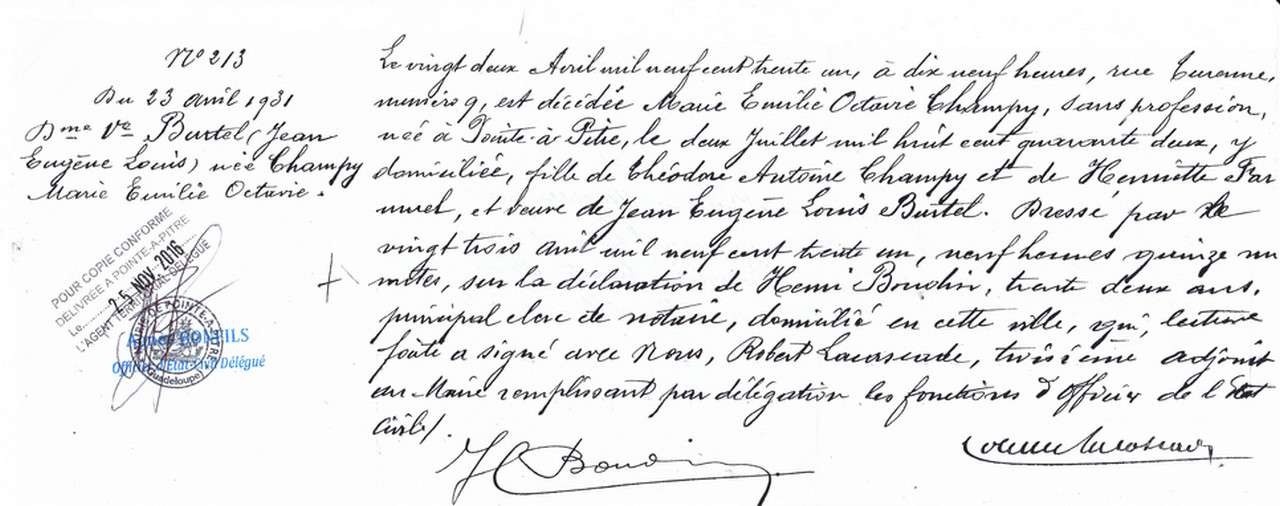 N° 213
Du 23 avril 1931
Dme Ve Burtel (Jean
Eugène Louis) née Champy
Marie Emilie Octavie.
POUR COPIE CONFORME
DÉLIVRÉE A POINTE-A-PITRE
Le 25 NOV. 2016
L'AGENT TERRITORIAL DÉLÉGUÉ
MAIRIE DE POINTE-A-PITRE
(Guadeloupe)
BONFILS
Officier d'Etat-Civil Délégué
Le vingt deux Avril mil neuf cent trente un, à dix neuf heures, rue Turenne,
numéro 9, est décédée Marie Emilie Octavie Champy, sans profession,
née à Pointe-à-Pitre, le deux Juillet mil huit cent quarante deux, y
domiciliée, fille de Théodore Antoine Champy et de Henriette Far
nuel, et veuve de Jean Eugène Louis Burtel. Dressé par le
vingt trois avril mil neuf cent trente un, neuf heures quinze mi
nutes, sur la déclaration de Henri Boudin, trente deux ans,
principal clerc de notaire, domicilié en cette ville, qui, lecture
faite a signé avec Nous, Robert Lacascade, troisième adjoint
au Maire remplissant par délégation les fonctions d'Officier de l'Etat
civil./.
H Boudin
Lacascade